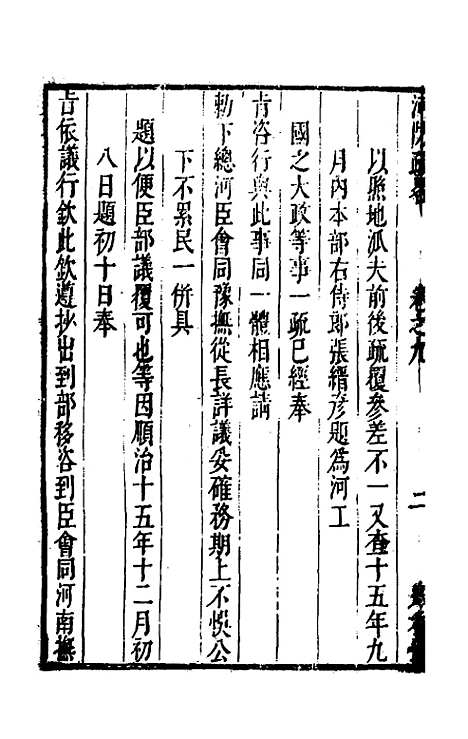 以照地派夫前後疏覆參差不一又查十五年九
月內本部右侍郎張縉彥題爲河工
國之大政等事一疏已經奉
旨咨行與此事同一體相應請
勅下總河臣會同豫撫從長詳議妥確務期上不悞公
下不累民一併具
題以便臣部議覆可也等因順治十五年十二月初
八日題初十日奉
旨依議行欽此欽遵抄出到部移咨到臣會同河南撫
卷之九
二